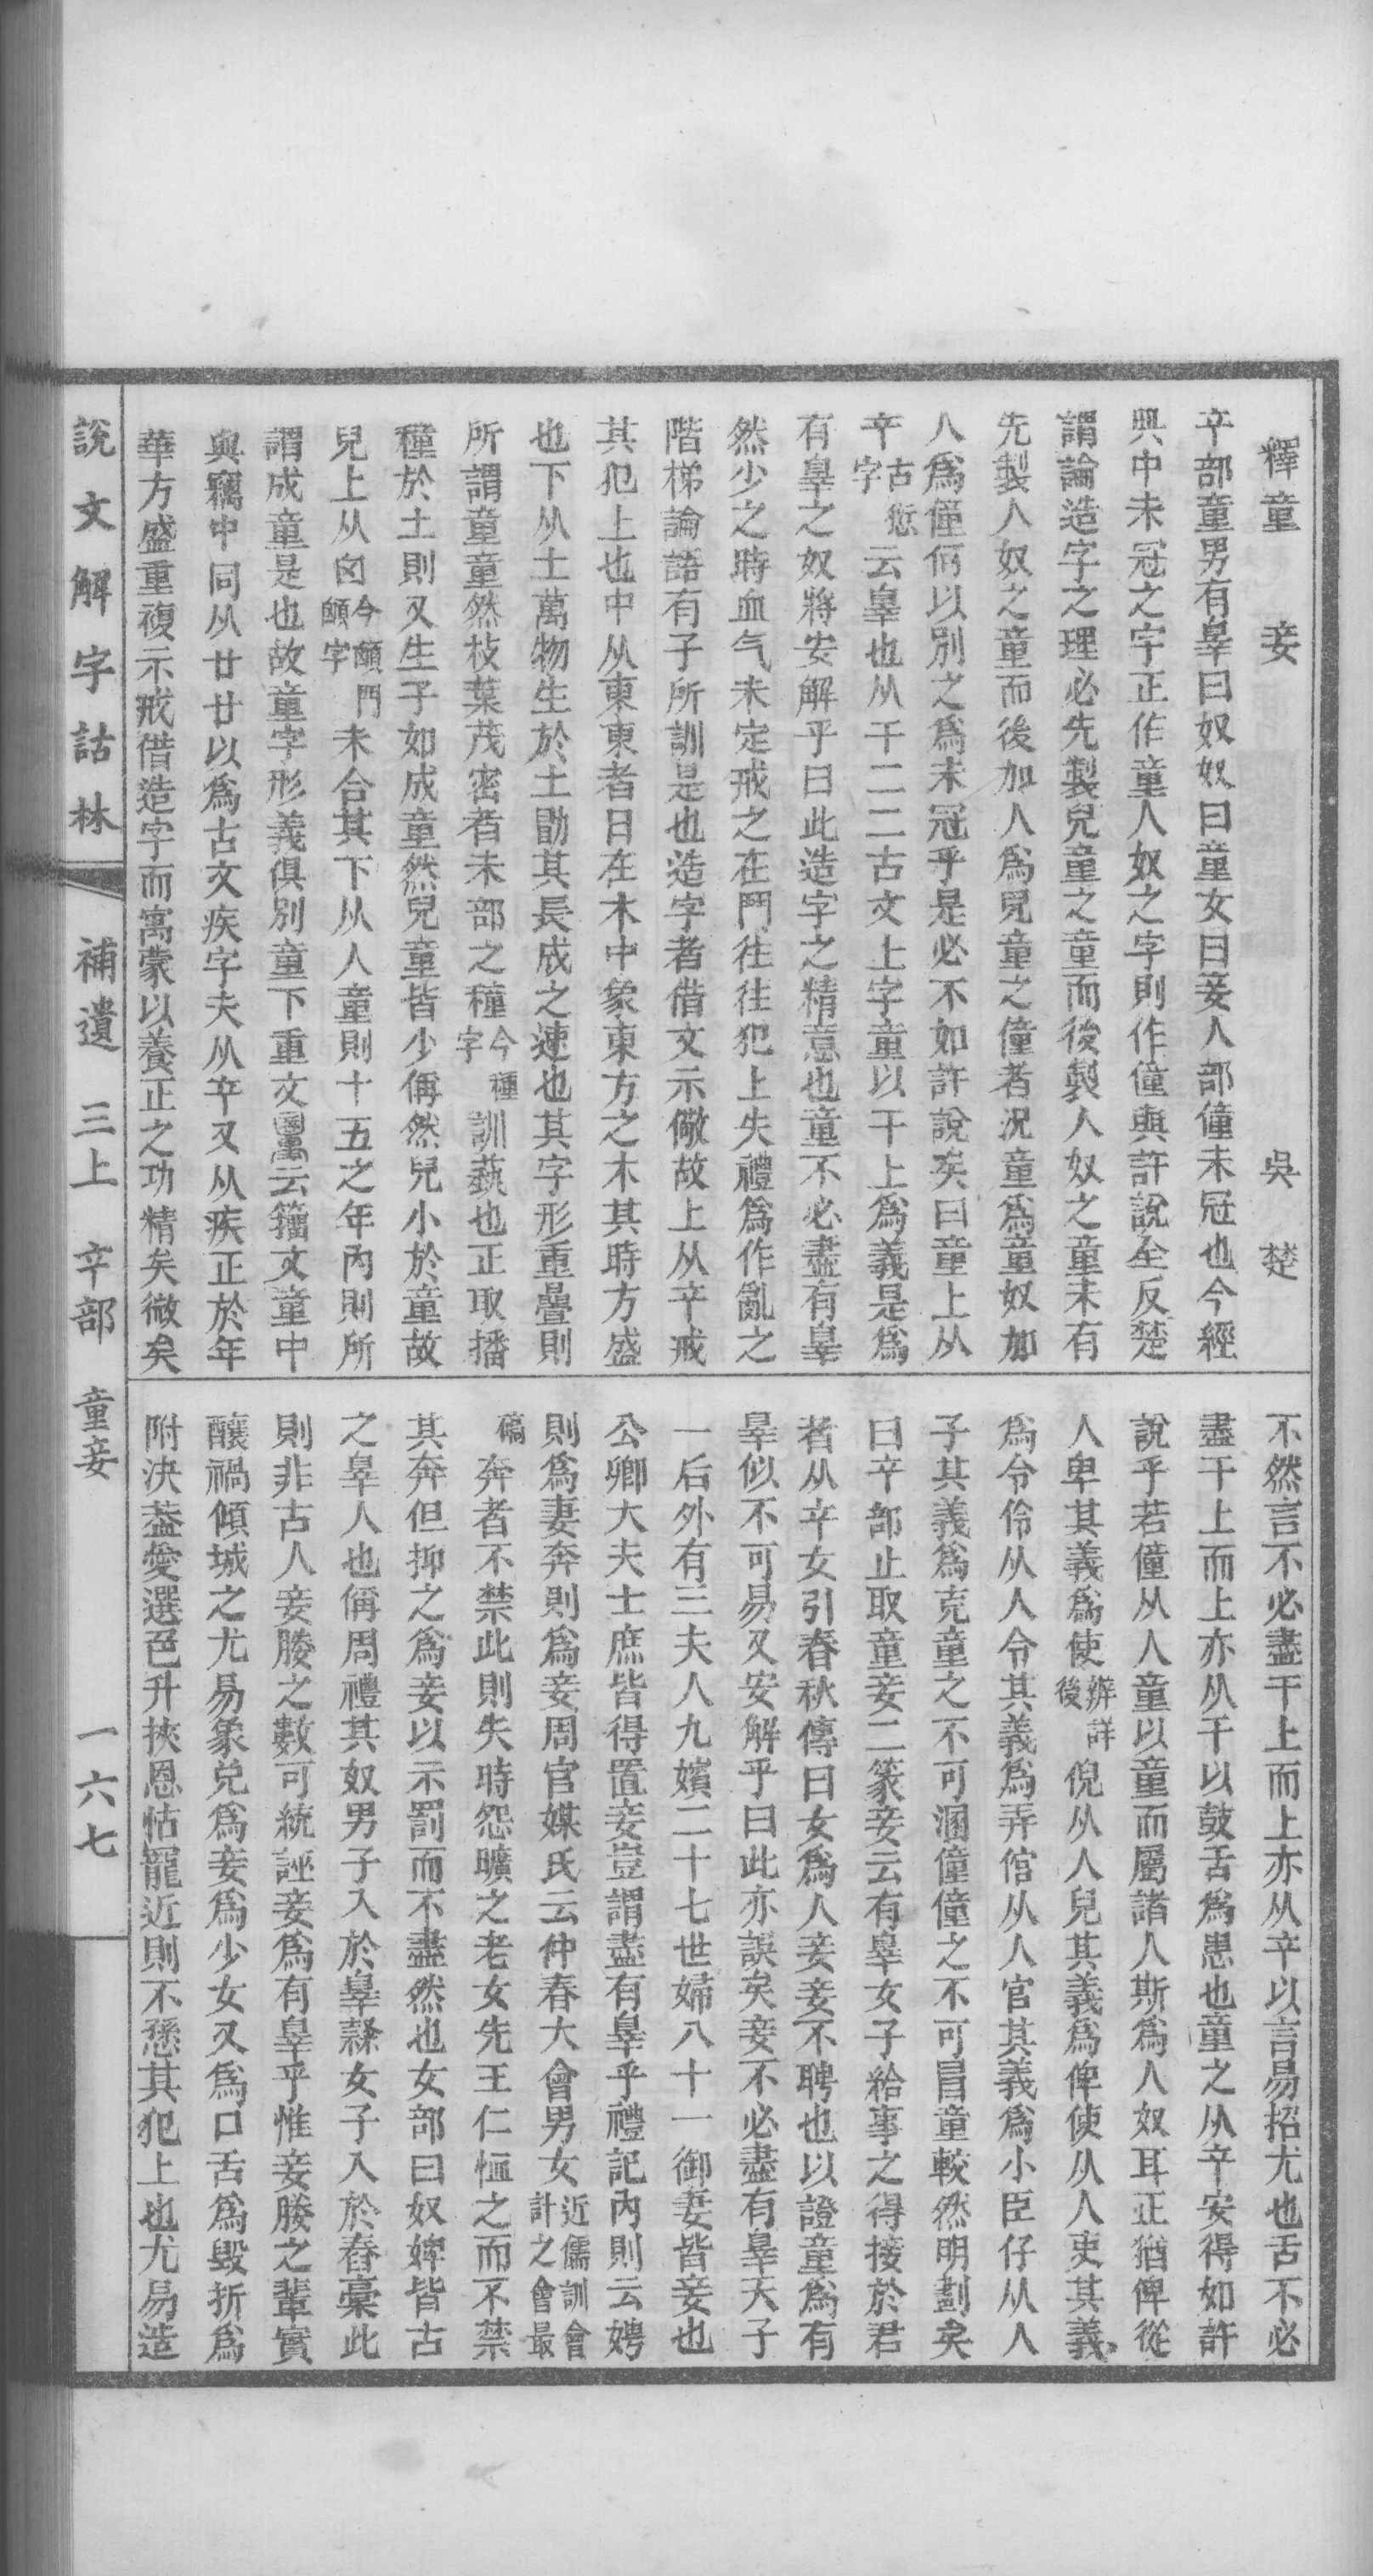 釋童 妾 吳 楚
䇂部童男有辠曰奴奴曰童女曰妾人部僮未冠也今經
典中未冠之字正作童人奴之字則作僮與許說全反楚
謂論造字之理必先製兒童之童而後製人奴之童未有
先製人奴之童而後加人為兒童之僮者況童為童奴加
人為僮何以別之為未冠乎是必不如許說矣曰童上从
䇂古愆字云辠也从干二二古文上字童以干上為義是為
有辠之奴將安解乎曰此造字之精意也童不必盡有辠
然少之時血气未定戒之在鬥往往犯上失禮為作亂之
階梯論語有子所訓是也造字者借文示儆故上从䇂戒
其犯上也中从東東者日在木中象東方之木其時方盛
也下从土萬物生於土勖其長成之速也其字形重疊則
所謂童童然枝葉茂密者禾部之種今種字訓蓺也正取播
種於土則又生子如成童然兒童皆少偁然兒小於童故
兒上从囟今顖門顖字未合其下从人童則十五之年內則所
謂成童是也故童字形義俱別童下重文云籒文童中
與竊中同从廿廿以為古文疾字夫从䇂又从疾正於年
華方盛重複示戒借造字而寓蒙以養正之功精矣微矣
不然言不必盡干上而上亦从䇂以言易招尤也舌不必
盡干上而上亦从干以鼓舌為患也童之从䇂安得如許
說乎若僮从人童以童而屬諸人斯為人奴耳正猶俾從
人卑其義為使辨詳後倪从人兒其義為俾使从人吏其義
為令伶从人令其義為弄倌从人官其義為小臣仔从人
子其義為克童之不可溷僮僮之不可冒童較然明劃矣
曰䇂部止取童妾二篆妾云有辠女子給事之得接於君
者从䇂女引春秋傳曰女為人妾妾不聘也以證童為有
辠似不可易又安解乎曰此亦誤矣妾不必盡有辠天子
一后外有三夫人九嬪二十七世婦八十一御妻皆妾也
公卿大夫士庶皆得置妾豈謂盡有辠乎禮記內則云娉
則為妻奔則為妾周官媒氏云仲春大會男女近儒訓會計之會最
稿奔者不禁此則失時怨曠之老女先王仁恤之而不禁
其奔但抑之為妾以示罰而不盡然也女部曰奴婢皆古
之辠人也偁周禮其奴男子入於辠隸女子入於舂稾此
則非古人妾媵之數可統誣妾為有辠乎惟妾媵之輩實
釀禍傾城之尤易象兌為妾為少女又為口舌為毀折為
附決蓋愛選色升挾恩怙寵近則不孫其犯上也尤易造
說文解字詁林 補遺 三上 䇂部 童妾 一六七